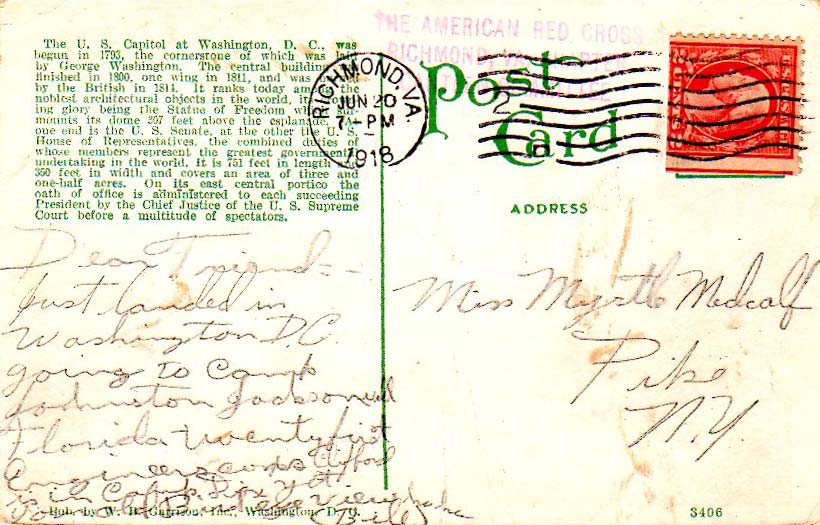 The U. S. Capitol at Washington, D. C., was
begun in 1793, the cornerstone of which was laid
by George Washington. The central building
finished in 1800, one wing in 1811, and was
by the British in 1814. It ranks today among the
noblest architectural objects in the world, its
ing glory being the Statue of Freedom which sur-
mounts its dome 307 feet above the esplanade.
one end is the U. S. Senate, at the other the U. S.
House of Representatives, the combined duties of
whose members represent the greatest government
undertaking in the world. It is 751 feet in length
350 feet in width and covers an area of three and
one-half acres. On its east central portico the
oath of office is administered to each succeeding
President by the Chief Justice of the U. S. Supreme
Court before a multitude of spectators.
THE AMERICAN RED CROSS
RICHMOND, VA. CHAPTER
RICHMOND, VA.
JUN 20
7 - PM
1918
2
Post
Card
ADDRESS
Dear Friend =
Just landed in
Washington D.C.
going to Camp
Johnston Jacksonvill
Florida twentyfirst
Engineers corps Clifford
is in Camp Dix yet
Bill
Miss Myrtle Medcalf
Pike
N.Y.
Pub. by W. B. Garrison, Inc., Washington, D. C.
3406